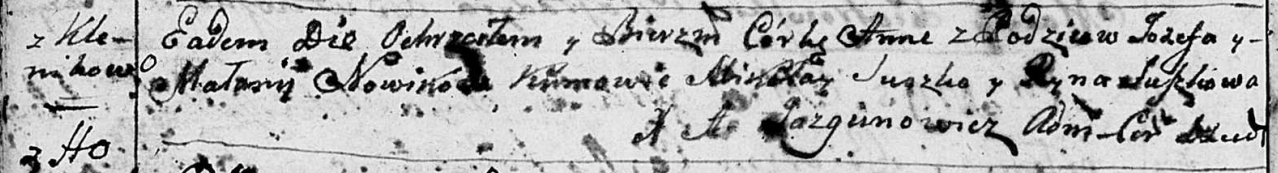 z Kle-
nikowo
Eadem Die Ochrzciłem y Bierzm Córkę Annę z Rodziców Jozefa y
Małanij Nowików Kumowie Mikołay Suszko y Ryna Suszkowa
A Jazgunowicz Adm Cer
z Ho